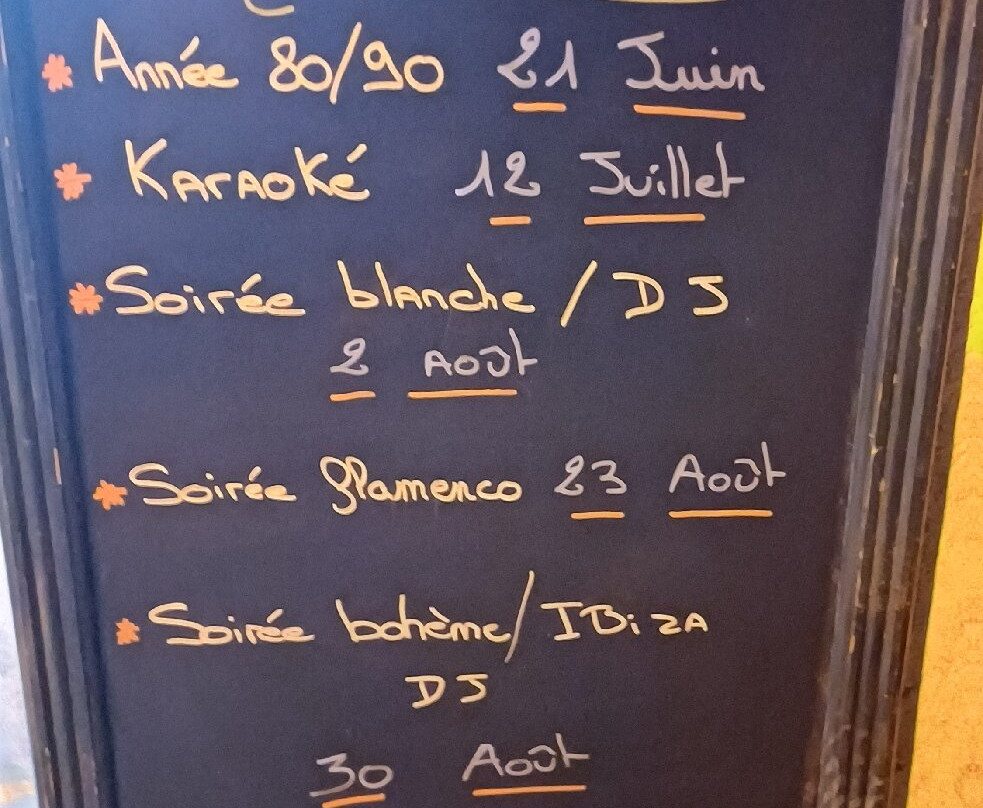 * Année 80/90 21 Juin
* Karaoké 12 Juillet
* Soirée blanche / DJ
2 Août
* Soirée flamenco 23 Août
* Soirée bohème/IBiZA
DJ
30 Août